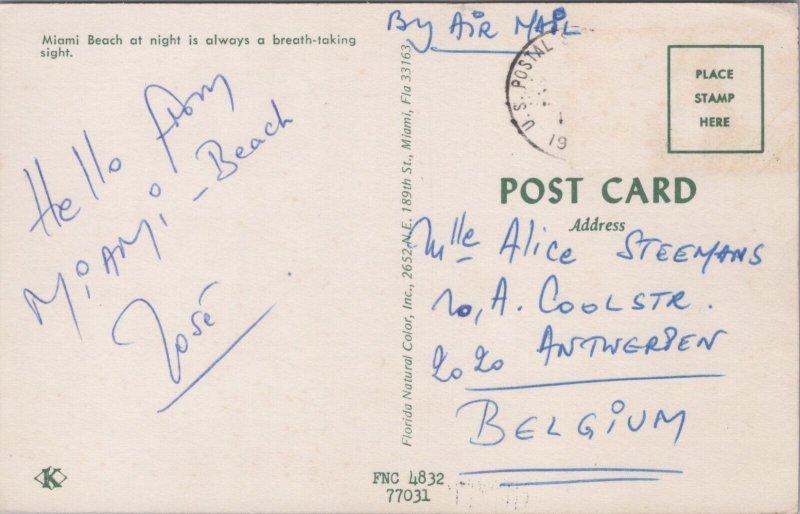 Miami Beach at night is always a breath-taking
sight.
Hello from
Miami-Beach
José
K
Florida Natural Color, Inc., 2652 N.E. 189th St., Miami, Fla 33163
By AIR MAIL
U.S. POSTAL
19
PLACE
STAMP
HERE
POST CARD
Address
Mlle Alice STEEMANS
A. COOLSTR.
2020 ANTWERPEN
BELGIUM
FNC 4832
77031